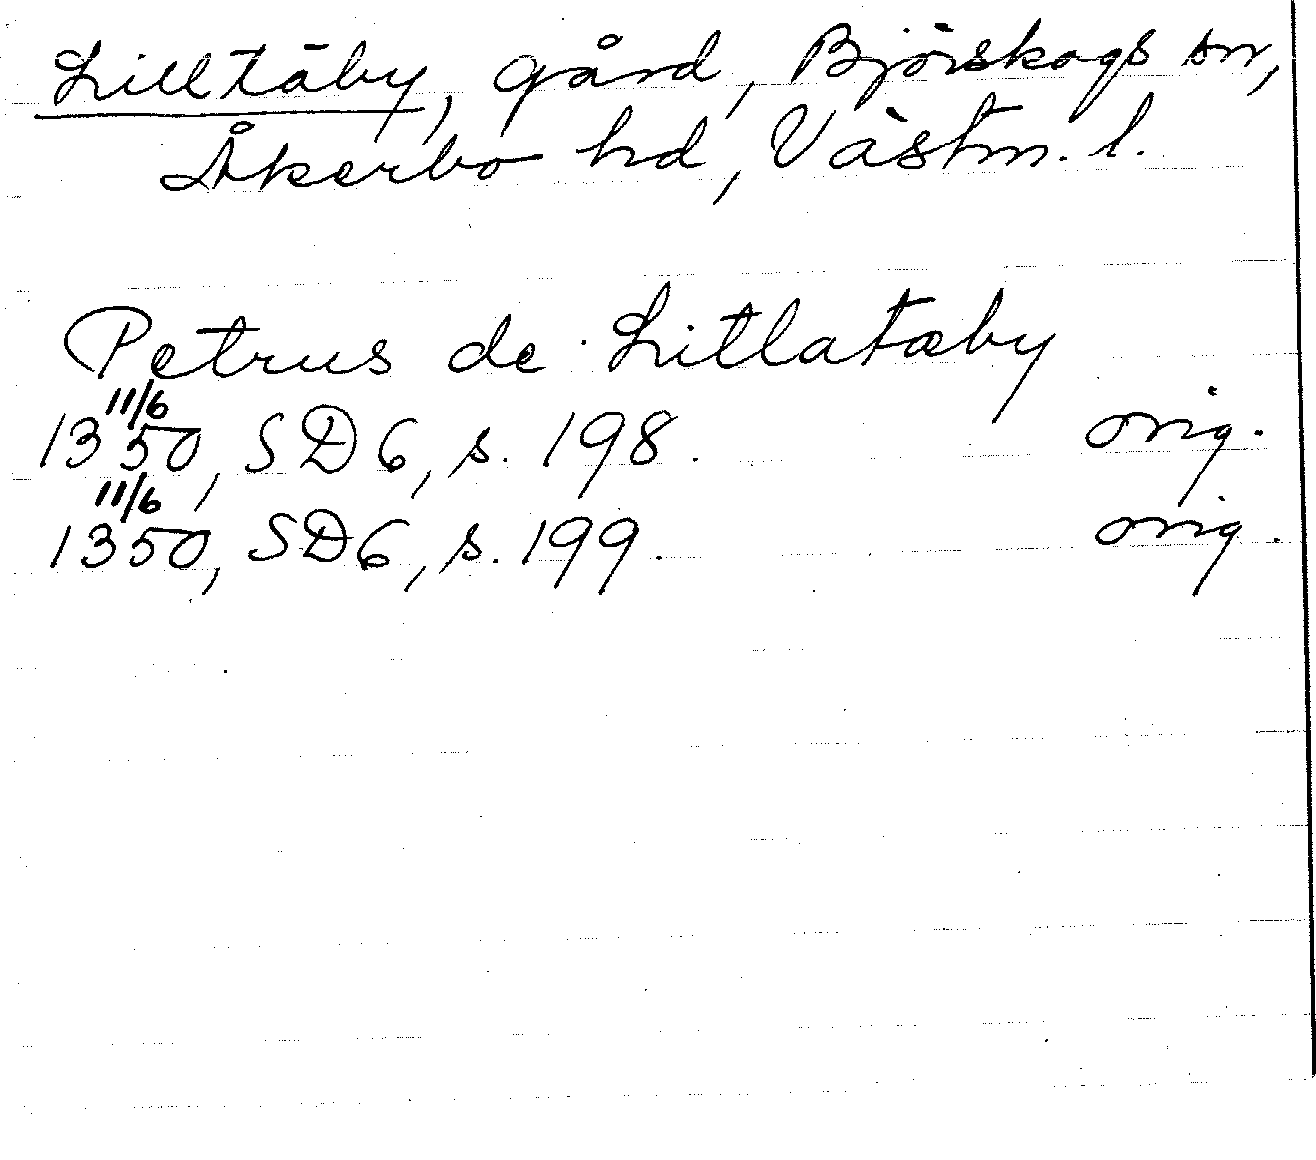 Lilltäby, gård, Björskogs sn,
Åkerbo hd, Västm. l.
Petrus de Litlatæby
11/6
1350, SD6, s. 198. orig.
11/6
1350, SD6, s. 199. orig.